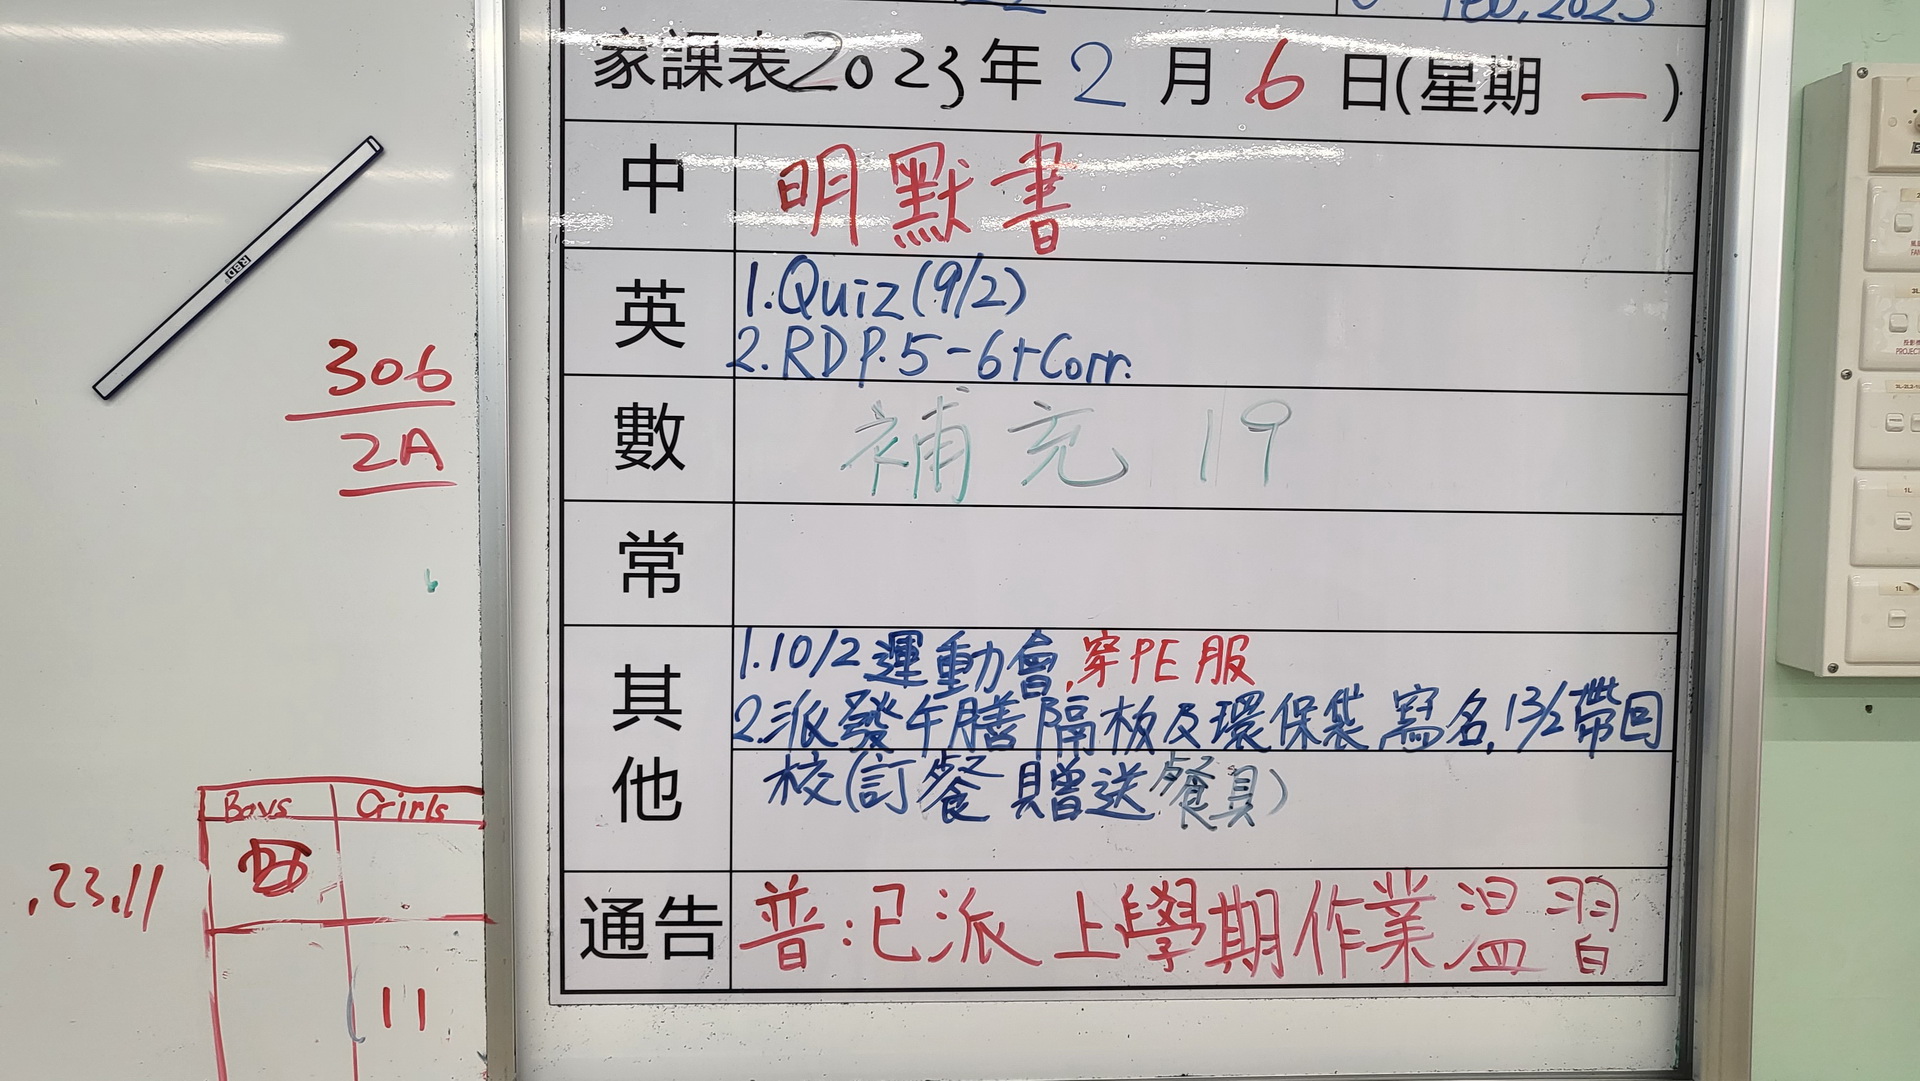 Feb, 2023
家課表2023年2月6日(星期一)
中 明默書
英 1.Quiz(9/2)
2.RDP.5-6+Corr.
數 補充 19
常
其他 1.10/2運動會,穿PE服
2.派發午膳隔板及環保袋 寫名,13/2帶回
校(訂餐 贈送餐具)
通告 普:已派上學期作業溫習
306
2A
Boys Girls
.23.11
11